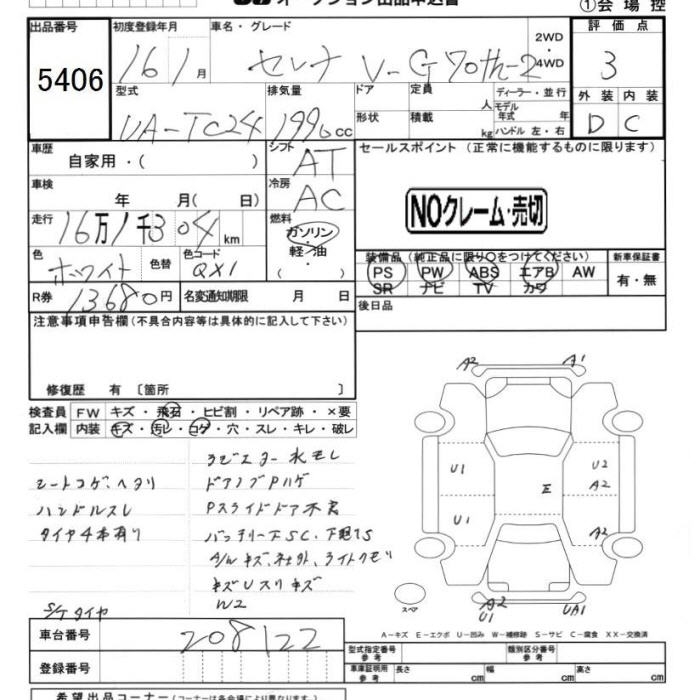 オークション出品申込書
①会場控
出品番号 初度登録年月 車名・グレード 評価点
5406 16 1月 セレナ V-G 70th-2 2WD 4WD 3
型式 排気量 ドア 定員 人 ディーラー・並行 外装 内装
UA-TC24 1990cc 形状 積載 kg モデル年式 年 ハンドル 左・右 D C
車歴 自家用・( ) シフト AT セールスポイント (正常に機能するものに限ります)
車検 年 月( 日) 冷房 AC
NOクレーム・売切
走行 16万1千304km 燃料 ガソリン・軽油
色 ホワイト 色替 色コード QX1
装備品(純正品に限り○をつけてください) 新車保証書
PS PW ABS エアB AW 有・無
SR ナビ TV カワ
R券 13680円 名変通知期限 月 日 後日品
注意事項申告欄(不具合内容等は具体的に記入して下さい)
修復歴 有 〔箇所 〕
検査員 FW キズ・飛石・ヒビ割・リペア跡・×要
記入欄 内装 キズ・汚レ・コゲ・穴・スレ・キレ・破レ
ラジエター水モレ
シートコゲ、ヘタリ ドアノブPハゲ
ハンドルスレ Pスライドドア不良
タイヤ4本有り バッテリー下SC、下廻りS
A/Wキズ、社外、ライトクモリ
キズUスリキズ
S/Tタイヤ W2
A2 A1
U1 U2
A2
E
U1 A2
スペア
A2
U1 UA1
A-キズ E-エクボ U-凹み W-補修跡 S-サビ C-腐食 XX-交換済
車台番号 208122
登録番号
型式指定番号 参考 類別区分番号 参考
車庫証明用 参考 長さ cm 幅 cm 高さ cm
希望出品コーナー